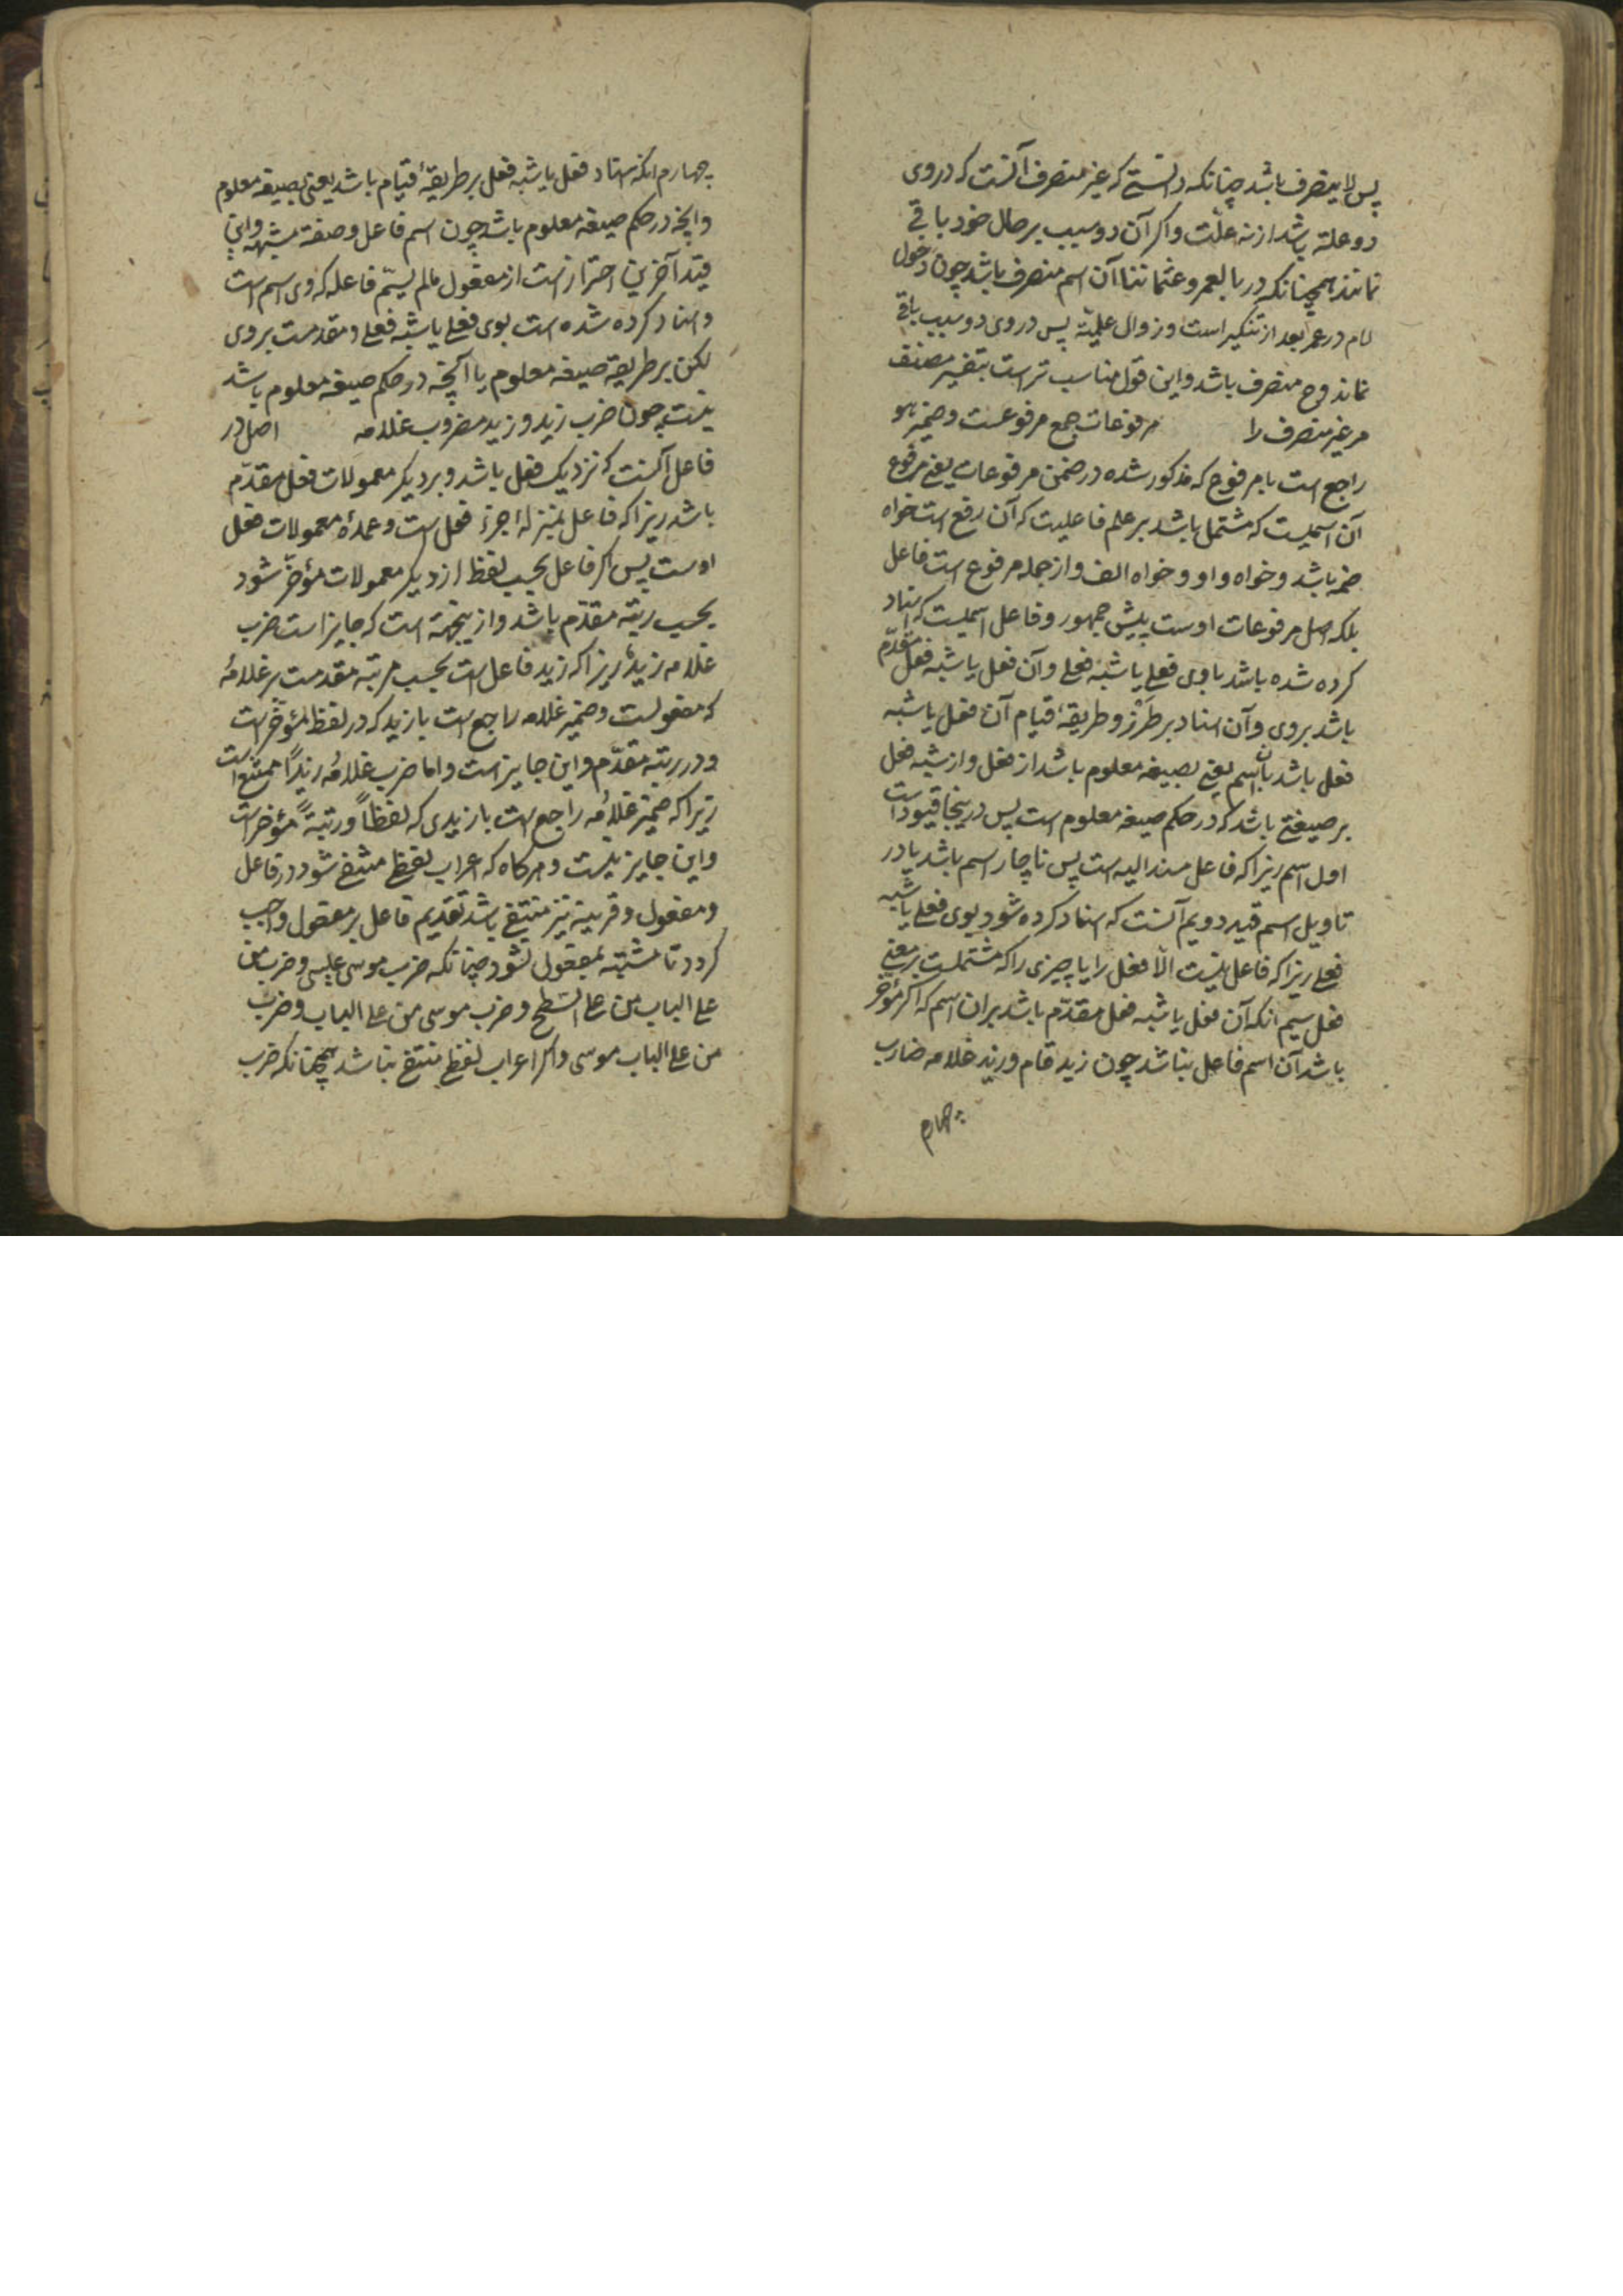 پس لاینصرف باشد چنانکه دانستی که غیر منصرف آنست که در وی
دو علة باشد از نه علّت و اکر آن دو سبب بر حال خود باقی
نمانند همچنانکه در بالعمر و عثماننا آن اسم منصرف باشد چون دخول
لام در عمر بعد از تنکیر است و زوال علمیّة پس در وی دو سبب باقی
نماند وح منصرف باشد و این قول مناسب تر است بتفسیر مصنف
مر غیر منصرف را مرفوعات جمع مرفوعست و ضمیر هو
راجع است با مرفوع که مذکور شده در ضمن مرفوعات یعنی مرفوع
آن اسمیست که مشتمل باشد بر علم فاعلیت که آن رفع است خواه
ضمه باشد و خواه واو و خواه الف و از جمله مرفوع است فاعل
بلکه اصل مرفوعات اوست پیش جمهور و فاعل اسمیست که اسناد
کرده شده باشد باوی فعلی یا شبه فعلی و آن فعل یا شبه فعل مقدّم
باشد بروی و آن اسناد بر طرز و طریقهٔ قیام آن فعل یا شبه
فعل باشد بآن اسم یعنی بصیغه معلوم باشد از فعل و از شبه فعل
بر صیغتی باشد که در حکم صیغه معلوم است پس درینجا قیود است
اول اسم زیرا که فاعل مسند الیه است پس ناچار اسم باشد یا در
تاویل اسم قید دویم آنست که اسناد کرده شود بوی فعلی یا شبه
فعلی زیرا که فاعل نیست الّا فعل را یا چیزی را که مشتملست بر معنی
فعل سیم انکه آن فعل یا شبه فعل مقدّم باشد بران اسم که اکر مؤخّر
باشد آن اسم فاعل نباشد چون زید قام و زید غلامه ضارب
چهارم
چهارم انکه اسناد فعل یا شبه فعل بر طریقهٔ قیام باشد یعنی بصیغه معلوم
وانچه در حکم صیغه معلوم باشد چون اسم فاعل و صفة مشبهه و این
قید آخرین احتراز است از مفعول مالم یسمّ فاعله که وی اسم است
و اسناد کرده شده است بوی فعلی یا شبه فعلی و مقدمست بروی
لکن بر طریقه صیغه معلوم یا آنچه در حکم صیغه معلوم باشد
نیست چون ضرب زید و زید مضروب غلامه اصل در
فاعل آنست که نزدیک فعل باشد و بر دیکر معمولات فعل مقدّم
باشد زیرا که فاعل بمنزلهٔ جزء فعل است و عمدهٔ معمولات فعل
اوست پس اکر فاعل بحسب لفظ از دیکر معمولات مؤخّر شود
بحسب رتبه مقدّم باشد و ازینجهة است که جایز است ضرب
غلامه زیدٌ زیرا که زید فاعل است بحسب مرتبه مقدمست بر غلامهُ
که مفعولست و ضمیر غلامه راجع است بازید که در لفظ مؤخّر است
و در رتبه مقدّم و این جایز است و اما ضرب غلامُه زیدًا ممتنع است
زیرا که ضمیر غلامُه راجع است بازیدی که لفظاً و رتبةً مؤخر است
و این جایز نیست و هرکاه که اعراب لفظی منتفی شود در فاعل
و مفعول و قرینه نیز منتفی باشد تقدیم فاعل بر مفعول واجب
کردد تا مشتبه بمفعول نشود چنانکه ضرب موسی عیسی و ضرب من
علی الباب من علی السّطح و ضرب موسی من علی الباب و ضرب
من علی الباب موسی و اکر اعراب لفظی منتفی نباشد همچنانکه ضرب